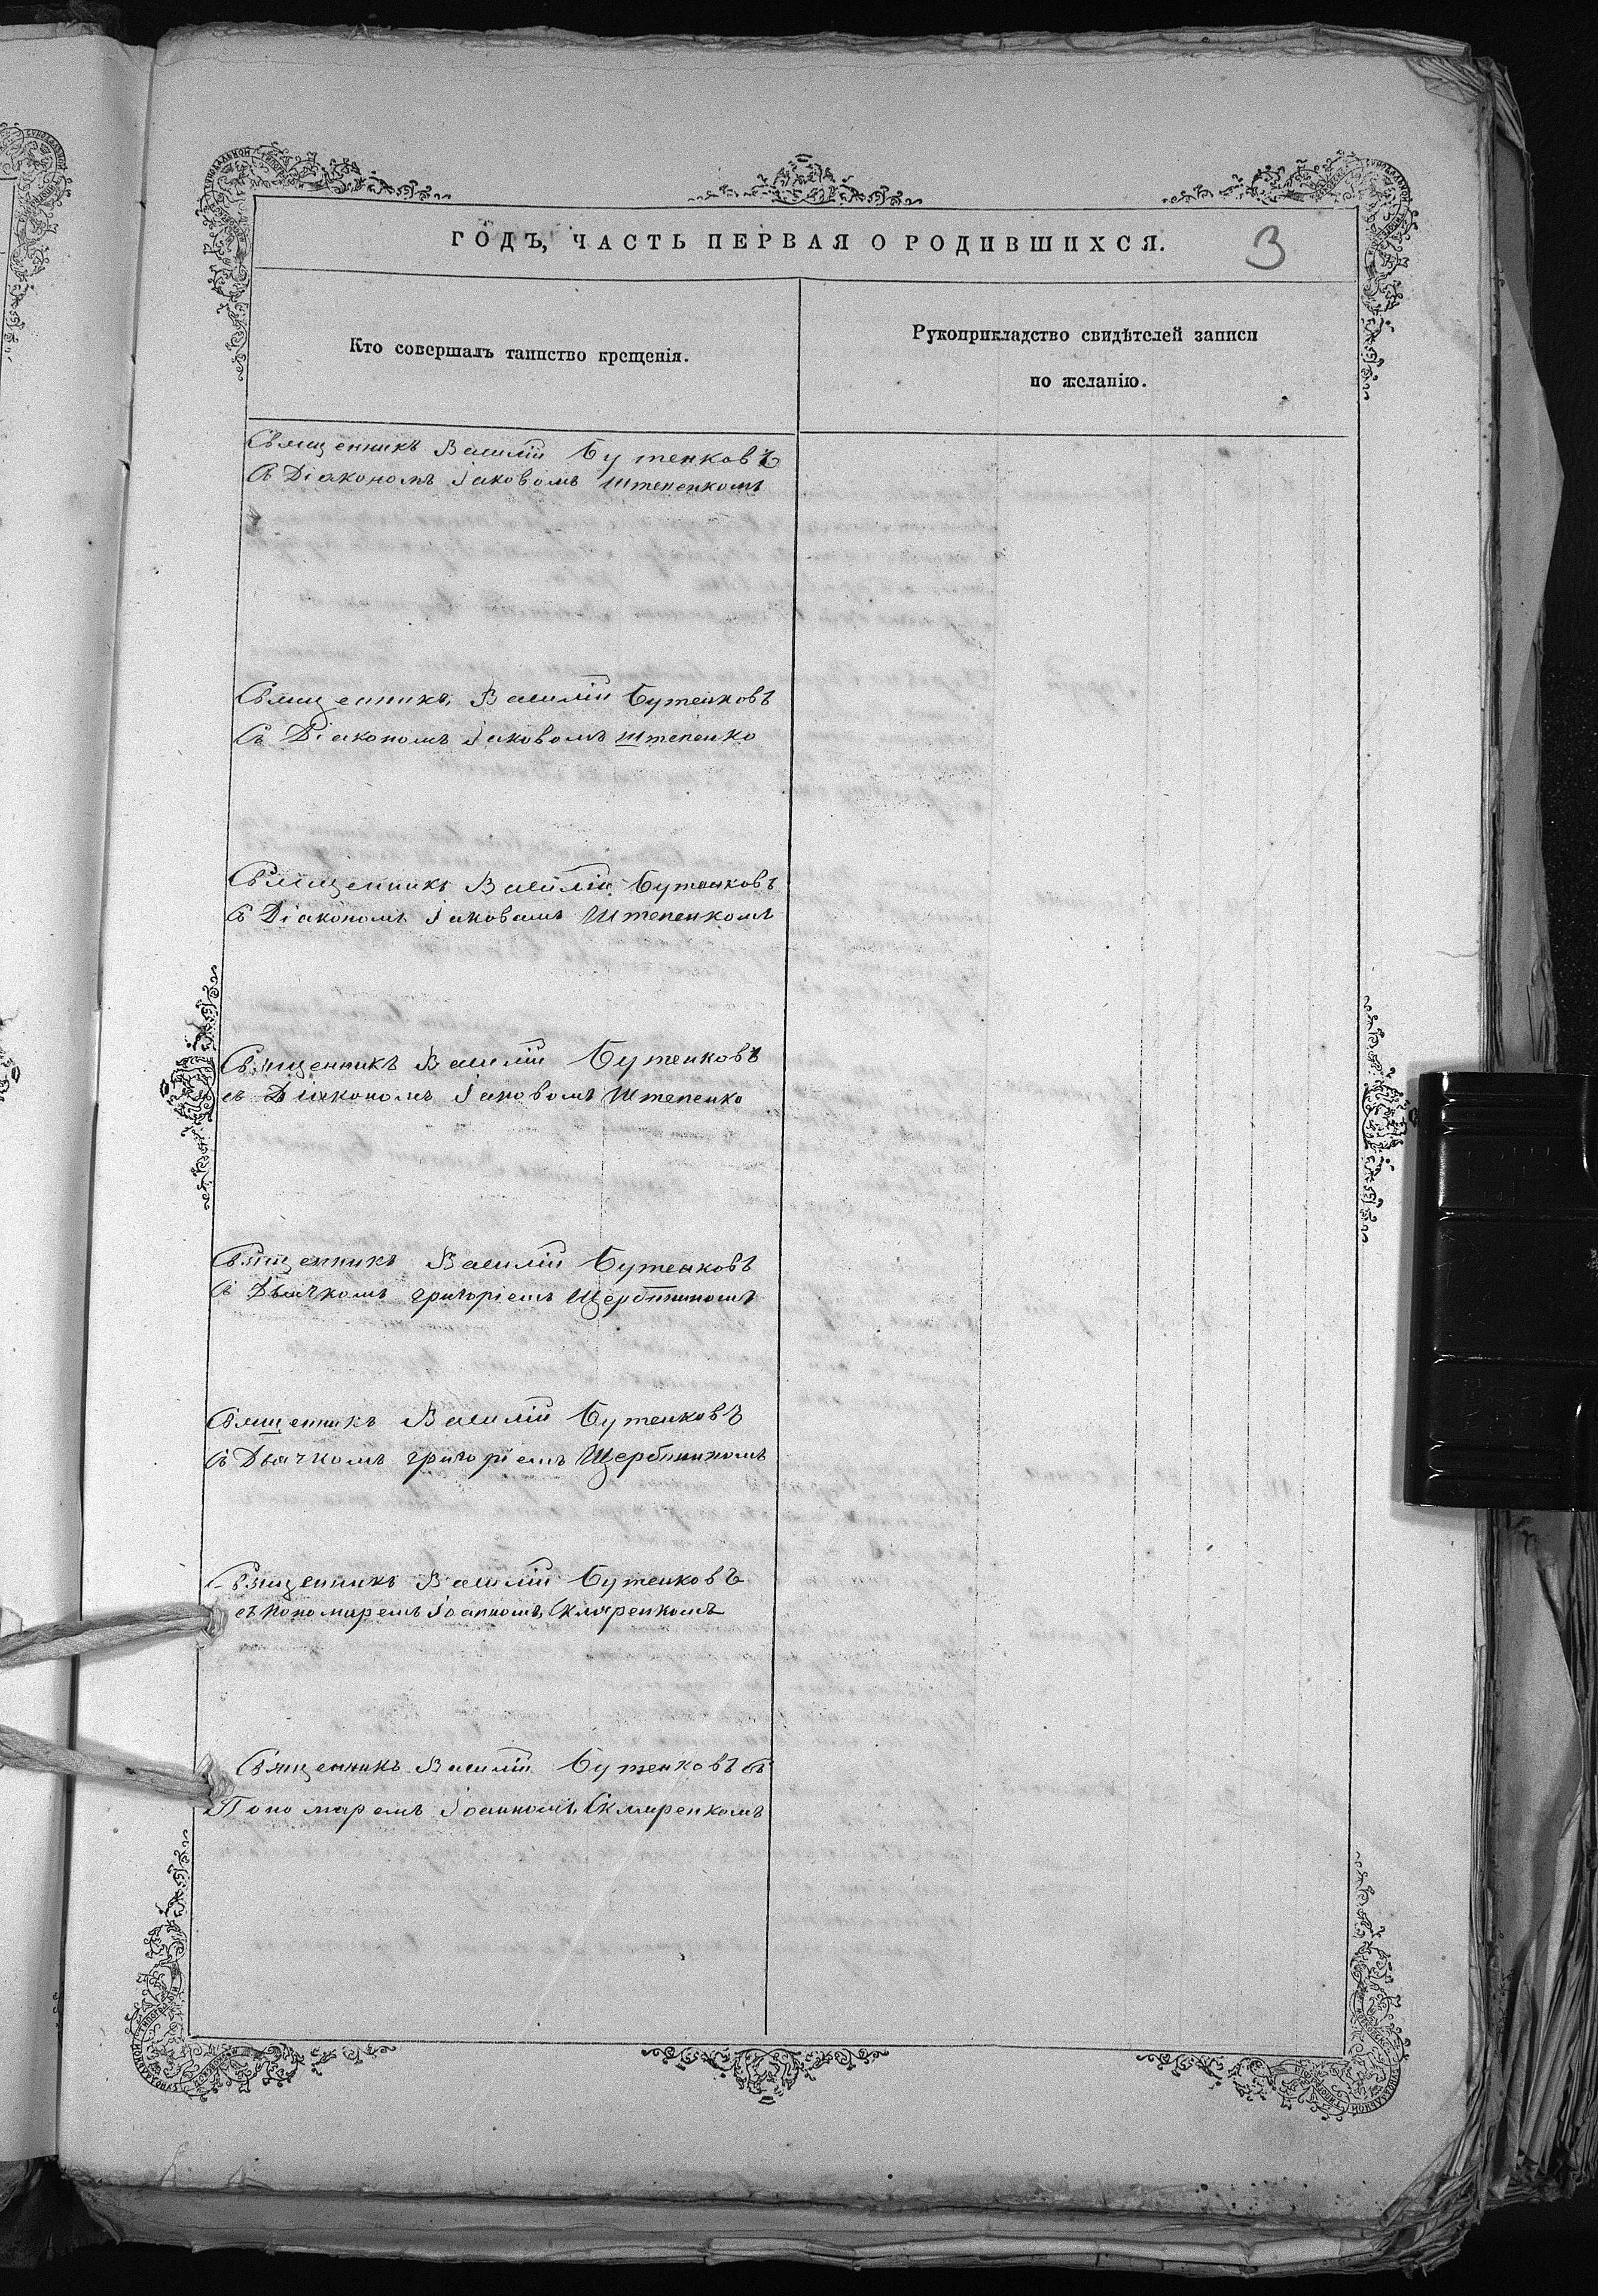 ГОДЪ, ЧАСТЬ ПЕРВАЯ О РОДИВШИХСЯ.
3
Кто совершалъ таинство крещенія.
Рукоприкладство свидѣтелей записи
по желанію.
Священникъ Василій Бутенковъ
съ Діакономъ Іаковомъ Штепенкомъ
Священникъ Василій Бутенковъ
съ Діакономъ Іаковомъ Штепенко
Священникъ Василій Бутенковъ
съ Діакономъ Іаковомъ Штепенкомъ
Священникъ Василій Бутенковъ
съ Діакономъ Іаковомъ Штепенко
Священникъ Василій Бутенковъ
съ Дьячкомъ Григоріемъ Щербининомъ
Священникъ Василій Бутенковъ
съ Дьячкомъ Григоріемъ Щербининомъ
Священникъ Василій Бутенковъ
съ пономаремъ Іоанномъ Скляренкомъ
Священникъ Василій Бутенковъ съ
Пономаремъ Іоанномъ Скляренкомъ